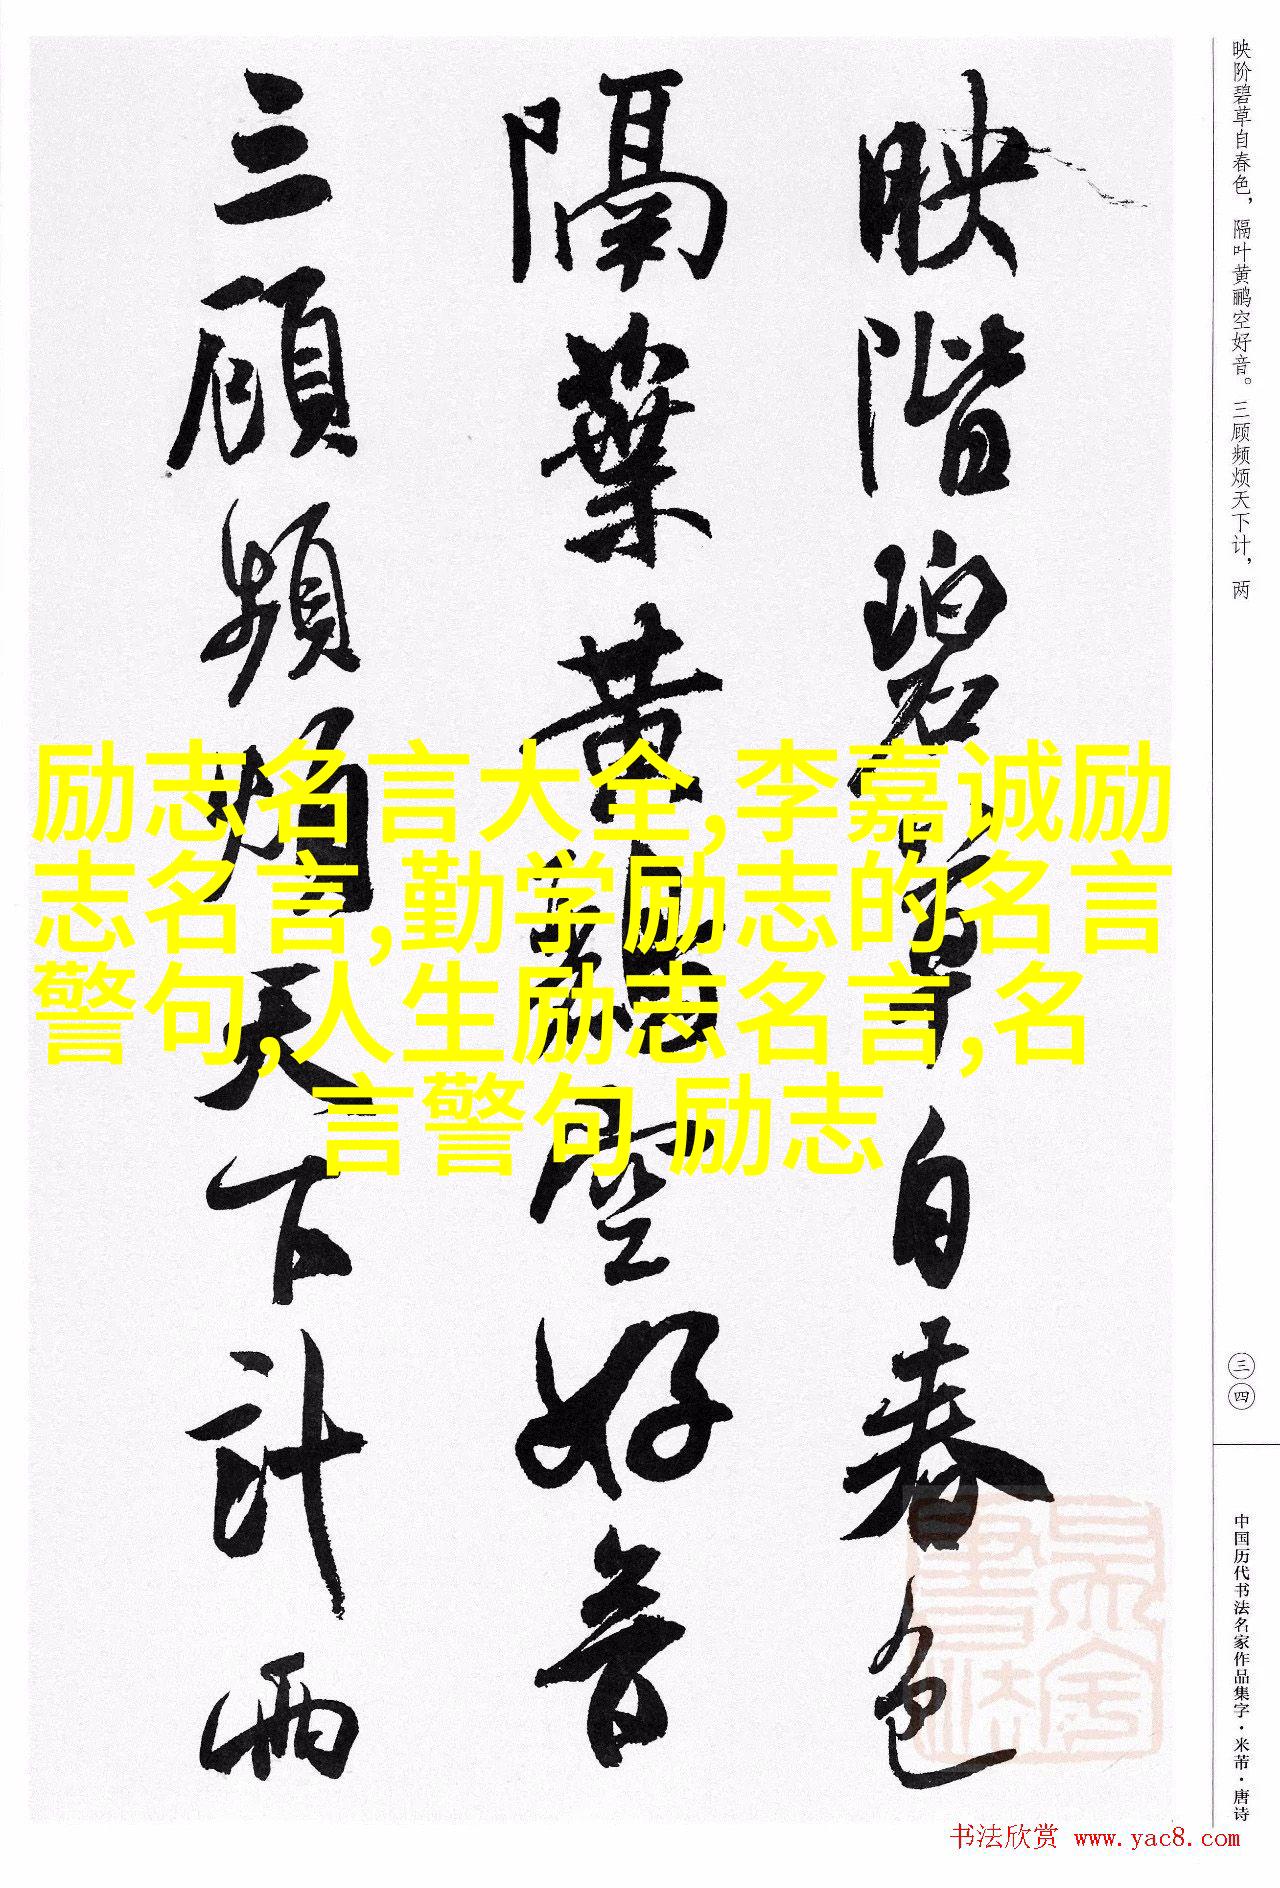 映階碧草自春色
隔葉黄鸝空好音
三顧頻煩天下計兩
励志名言大全,李嘉诚励
志名言,勤学励志的名言
警句,人生励志名言,名
言警句 励志
映阶碧草自春色，隔叶黄鹂空好音。三顾频烦天下计，两
三四
中国历代书法名家作品集字·米芾·唐诗
书法欣赏 www.yac8.com